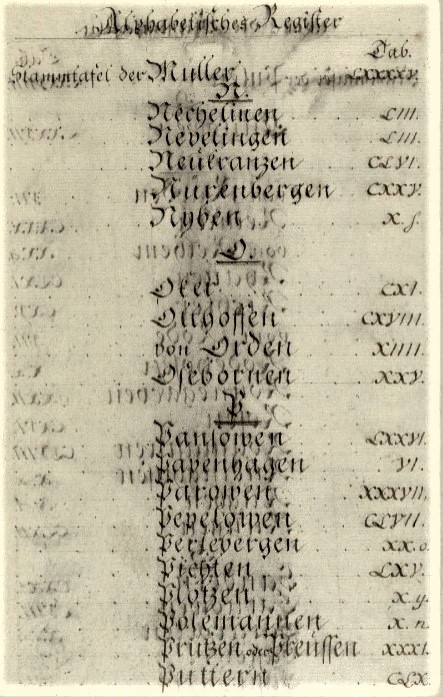 Alphabetisches Register
Tab.
Stammtafel der Muller. LXXXXV.
N.
Nechelinen LIII.
Nevelingen LIII.
Neücranzen CLVI.
Nürenbergen CXXV.
Nyben X.f.
O.
CXI.
Olthoffen CXVIII.
von Orden XIIII.
Osebornen XXV.
P.
Pansowen LXXVI.
Papenhagen VI.
Parowen XXXVII.
Pepelowen CLVII.
Perlebergen XX.o.
Pichten LXV.
Plotzen X.y.
Polemannen X.n.
Prützen oder Preüssen XXXI.
Püttern CLX.